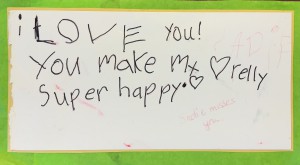 i LOVE you!
You make my ♡ relly
super happy.♡